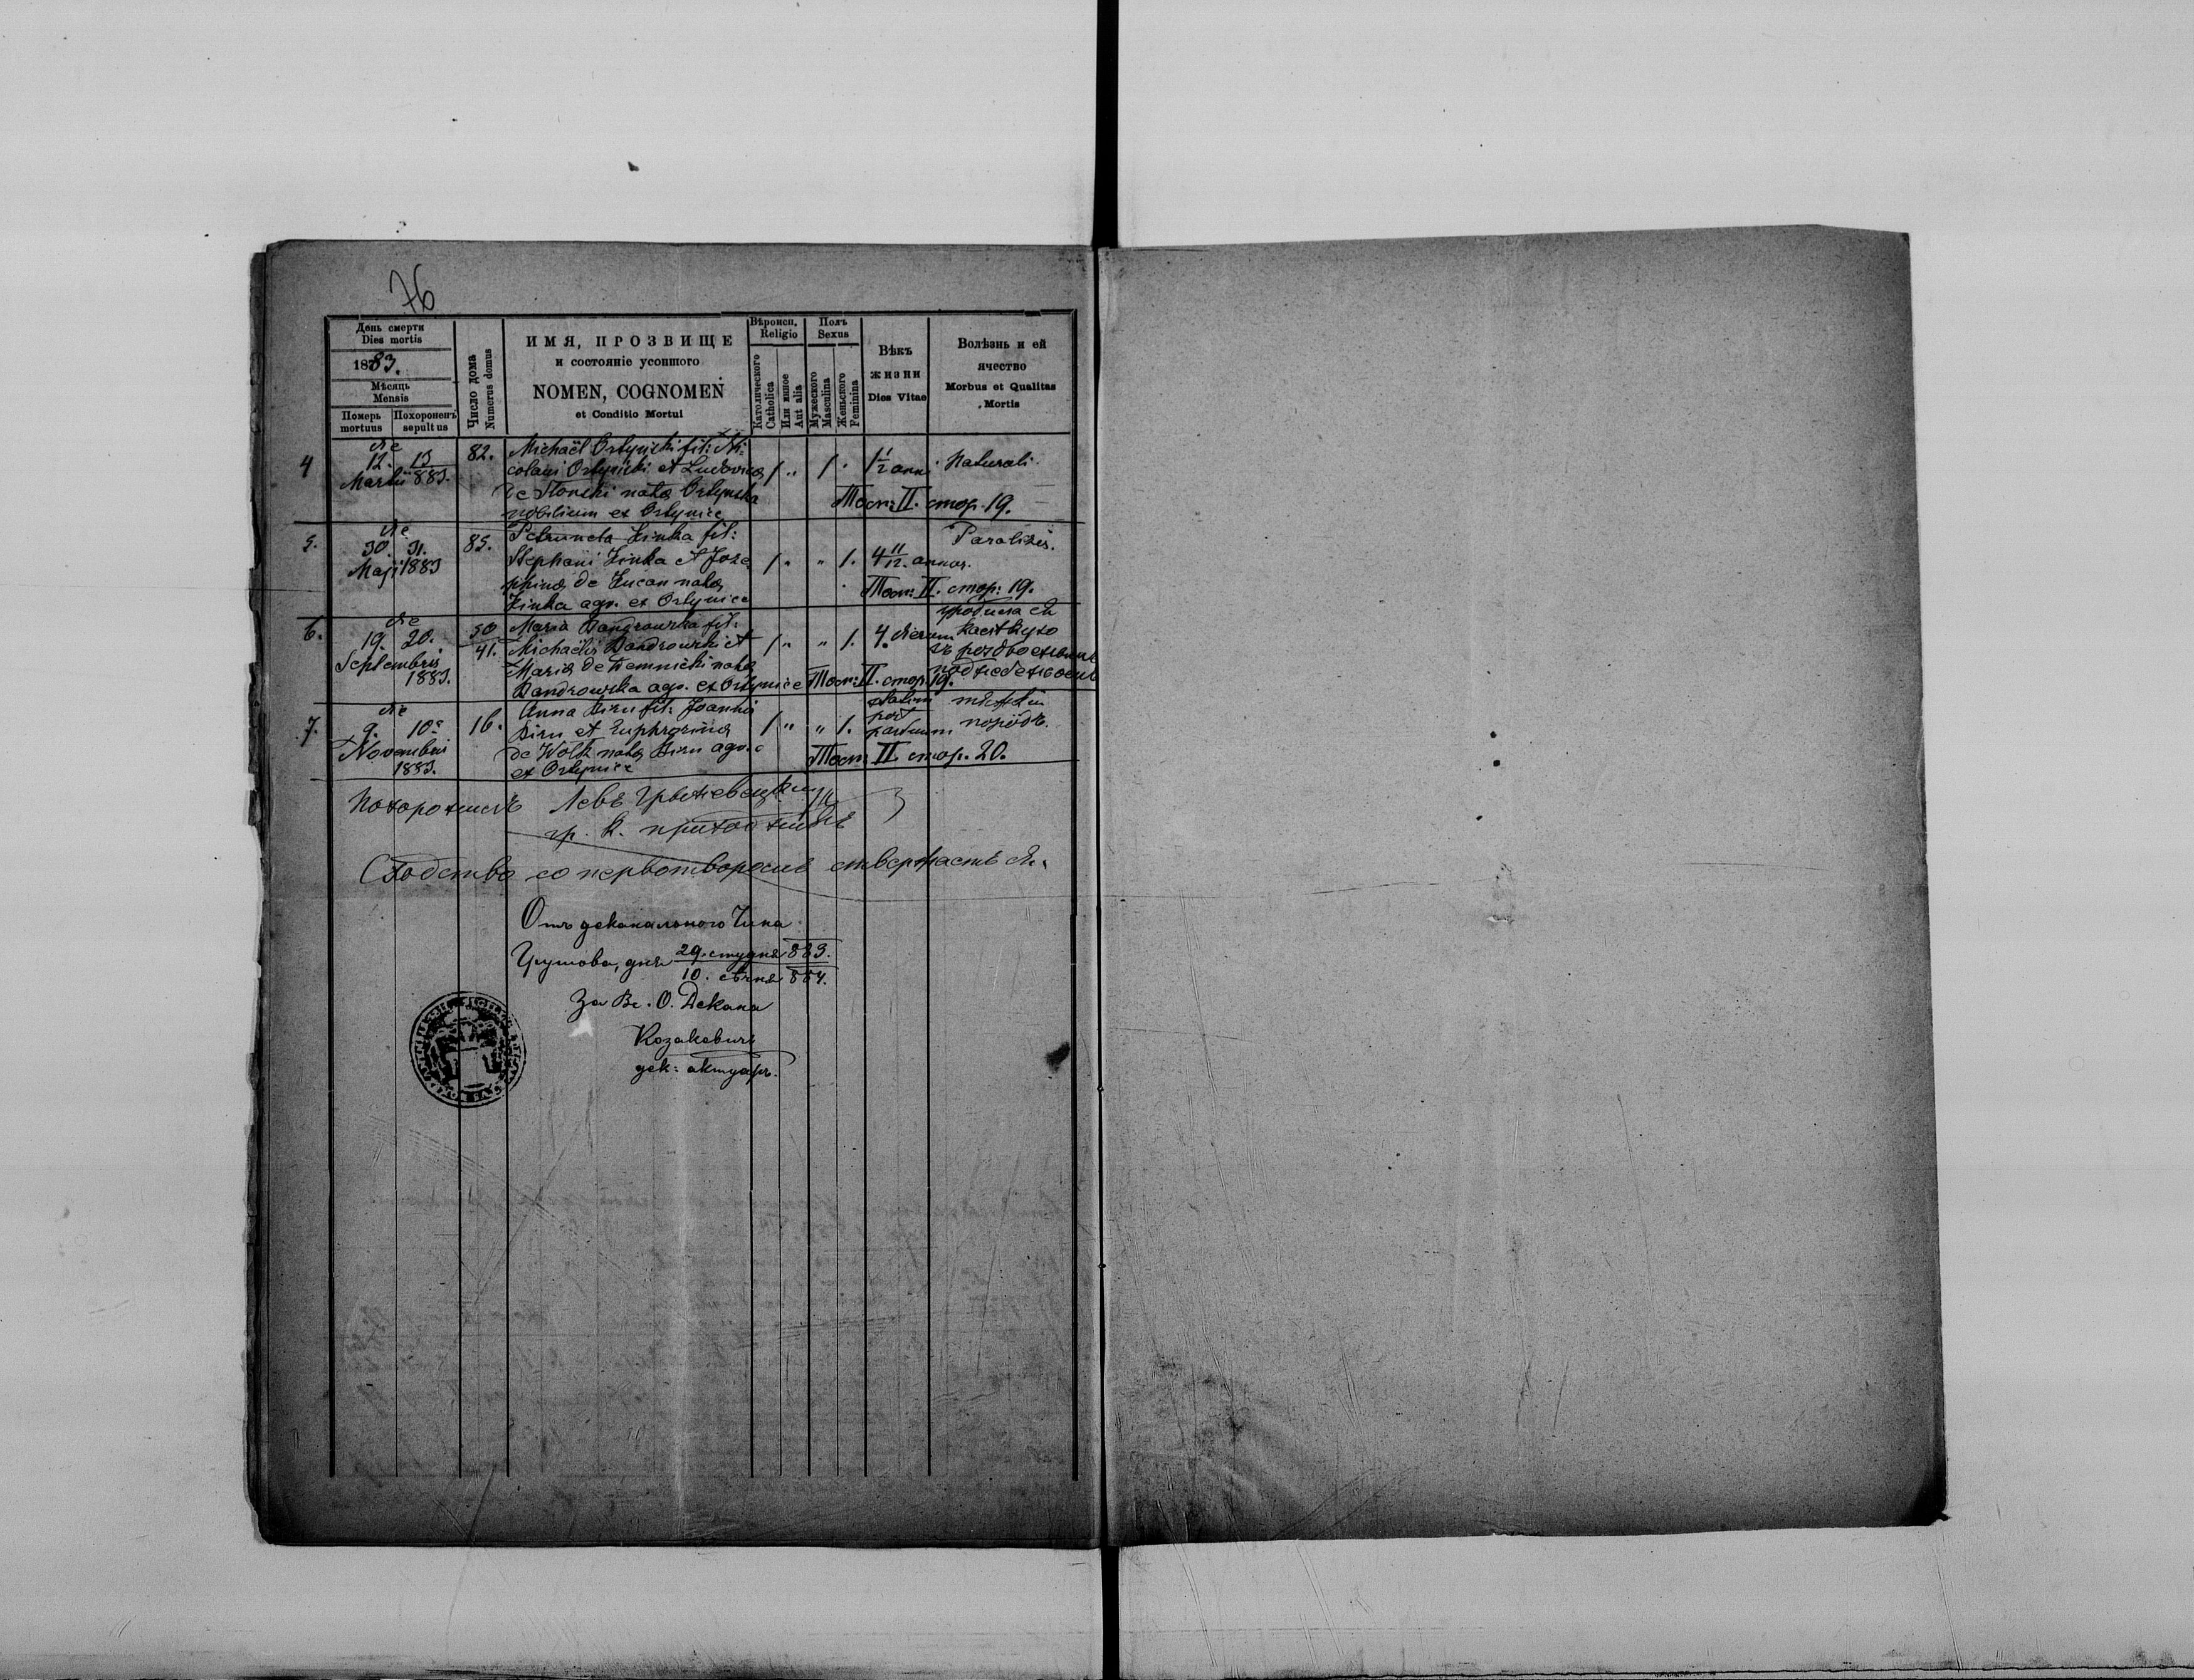 76
День смерти
Dies mortis
1883.
Мѣсяць
Mensis
Померъ
mortuus
Похороненъ
sepultus
Число дома
Numerus domus
ИМЯ, ПРОЗВИЩЕ
и состоянiе усопшого
NOMEN, COGNOMEN
et Conditio Mortui
Вѣроисп.
Religio
Католического
Catholica
Или инное
Aut alia
Полъ
Sexus
Мужеского
Masculina
Женьского
Feminina
Вѣкъ
жизни
Dies Vitae
Волѣзнь и ей
ячество
Morbus et Qualitas
Mortis
4 die 12. 13 Martii 883. 82.
Michaël Ortyński fil: Ni-
colai Ortyński et Ludovica
de Słonski nata Ortynska
nobilium ex Ortynice
1 " 1 . 1 1/2 anni Naturali.
Том: II. стор. 19.
5. die 30. 31. Maji 1883 85.
Petrunela Zinka fil:
Stephani Zinka et Joze
phina de Lucan nata
Zinka agr. ex Ortynice
1 " " 1. 4 11/12. annor. Paralizis.
Том: II. стор: 19.
6. die 19. 20. Septembris 1883. 50 41.
Maria Dandrowska fil:
Michaelis Dandrowski et
Maria de nata
Dandrowska agr. ex Ortynice
1 " " 1. 4. dierum
Том: II. стор. 19.
7. die 9. 10. Novembri 1883. 16.
Anna Diru fil: Joannis
Diru et Euphrosina
de Wolk nata Diru agr.
ex Ortynice
1 " " 1. statim
post
partum
Том: II стор. 20.
Похоронилъ Левъ
гр. к. приходникъ
Сходство со первотворомъ ствержаетъ ся.
Отъ деканального Чина
дня 29. студня 883.
10. сѣчня 884.
За Вс. О. Декана
Козакевичъ
дек: актуаръ.